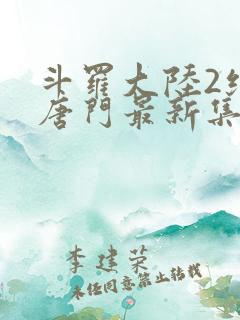 斗羅大陸2
唐門最新集
李建荣
未任同意禁止转载